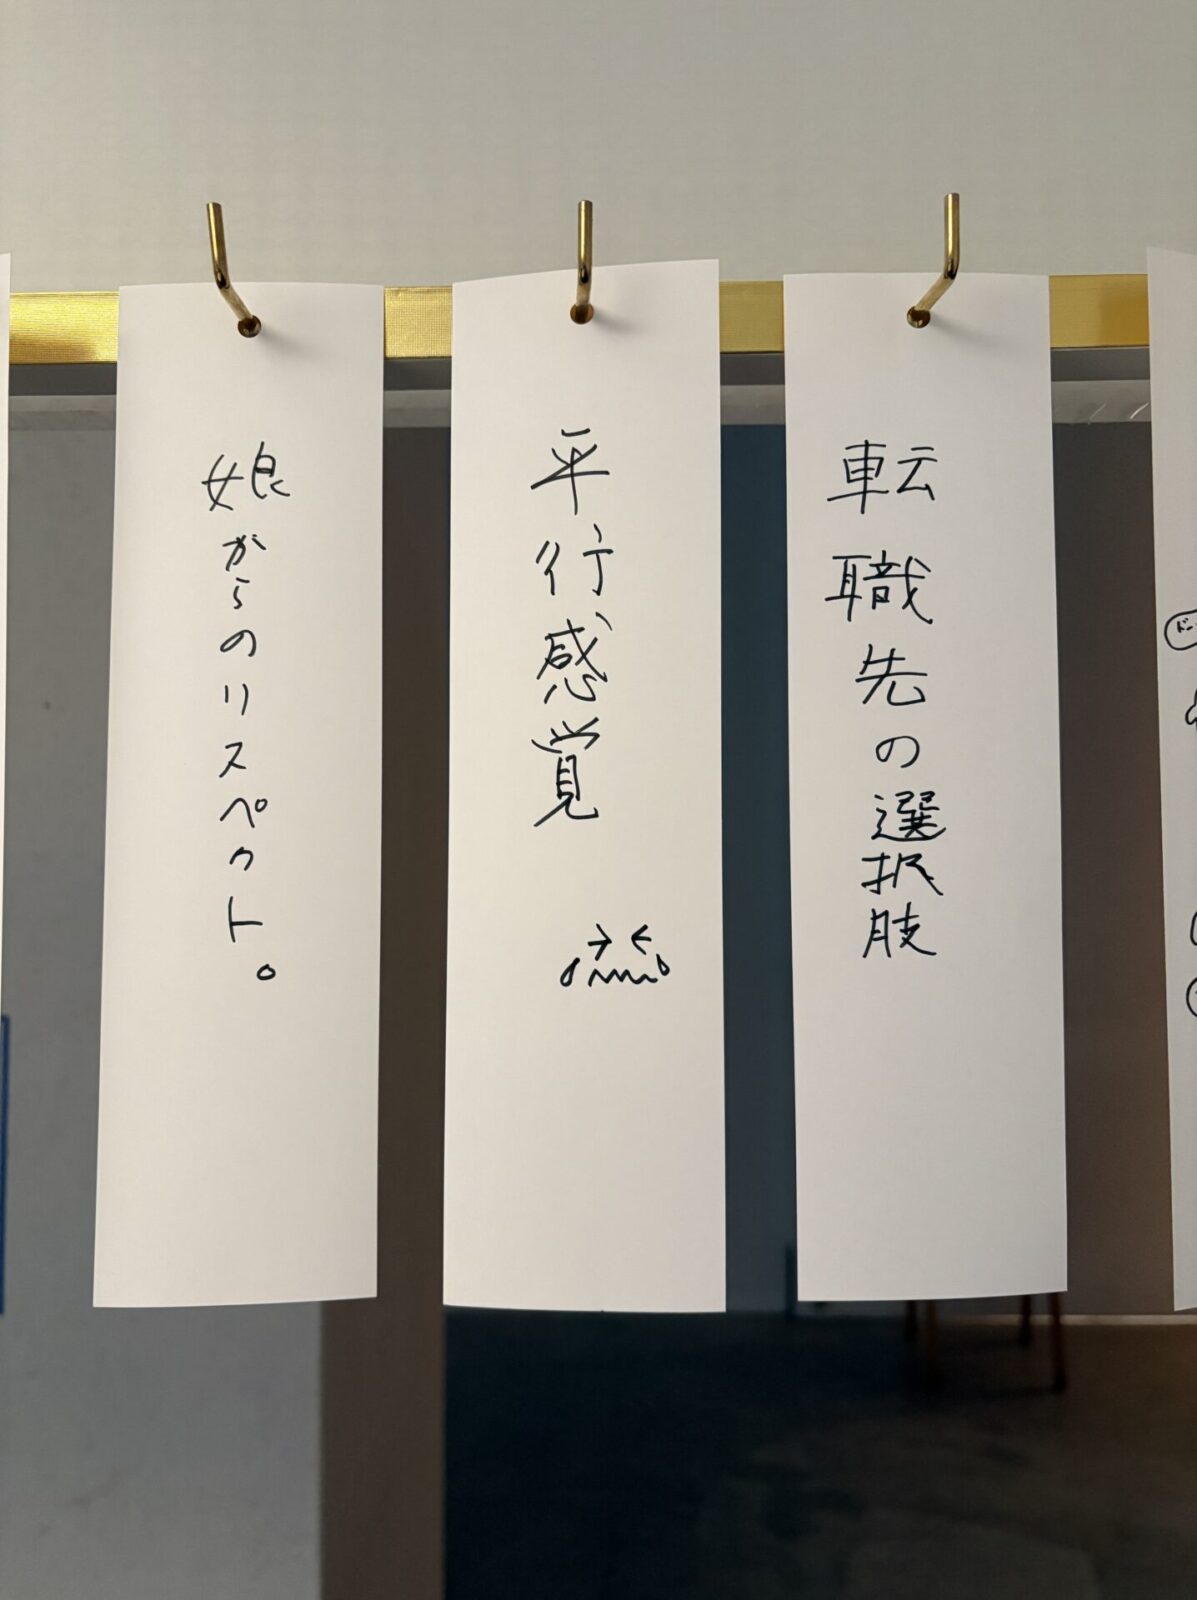 転職先の選択肢
平行感覚
娘からのリスペクト。